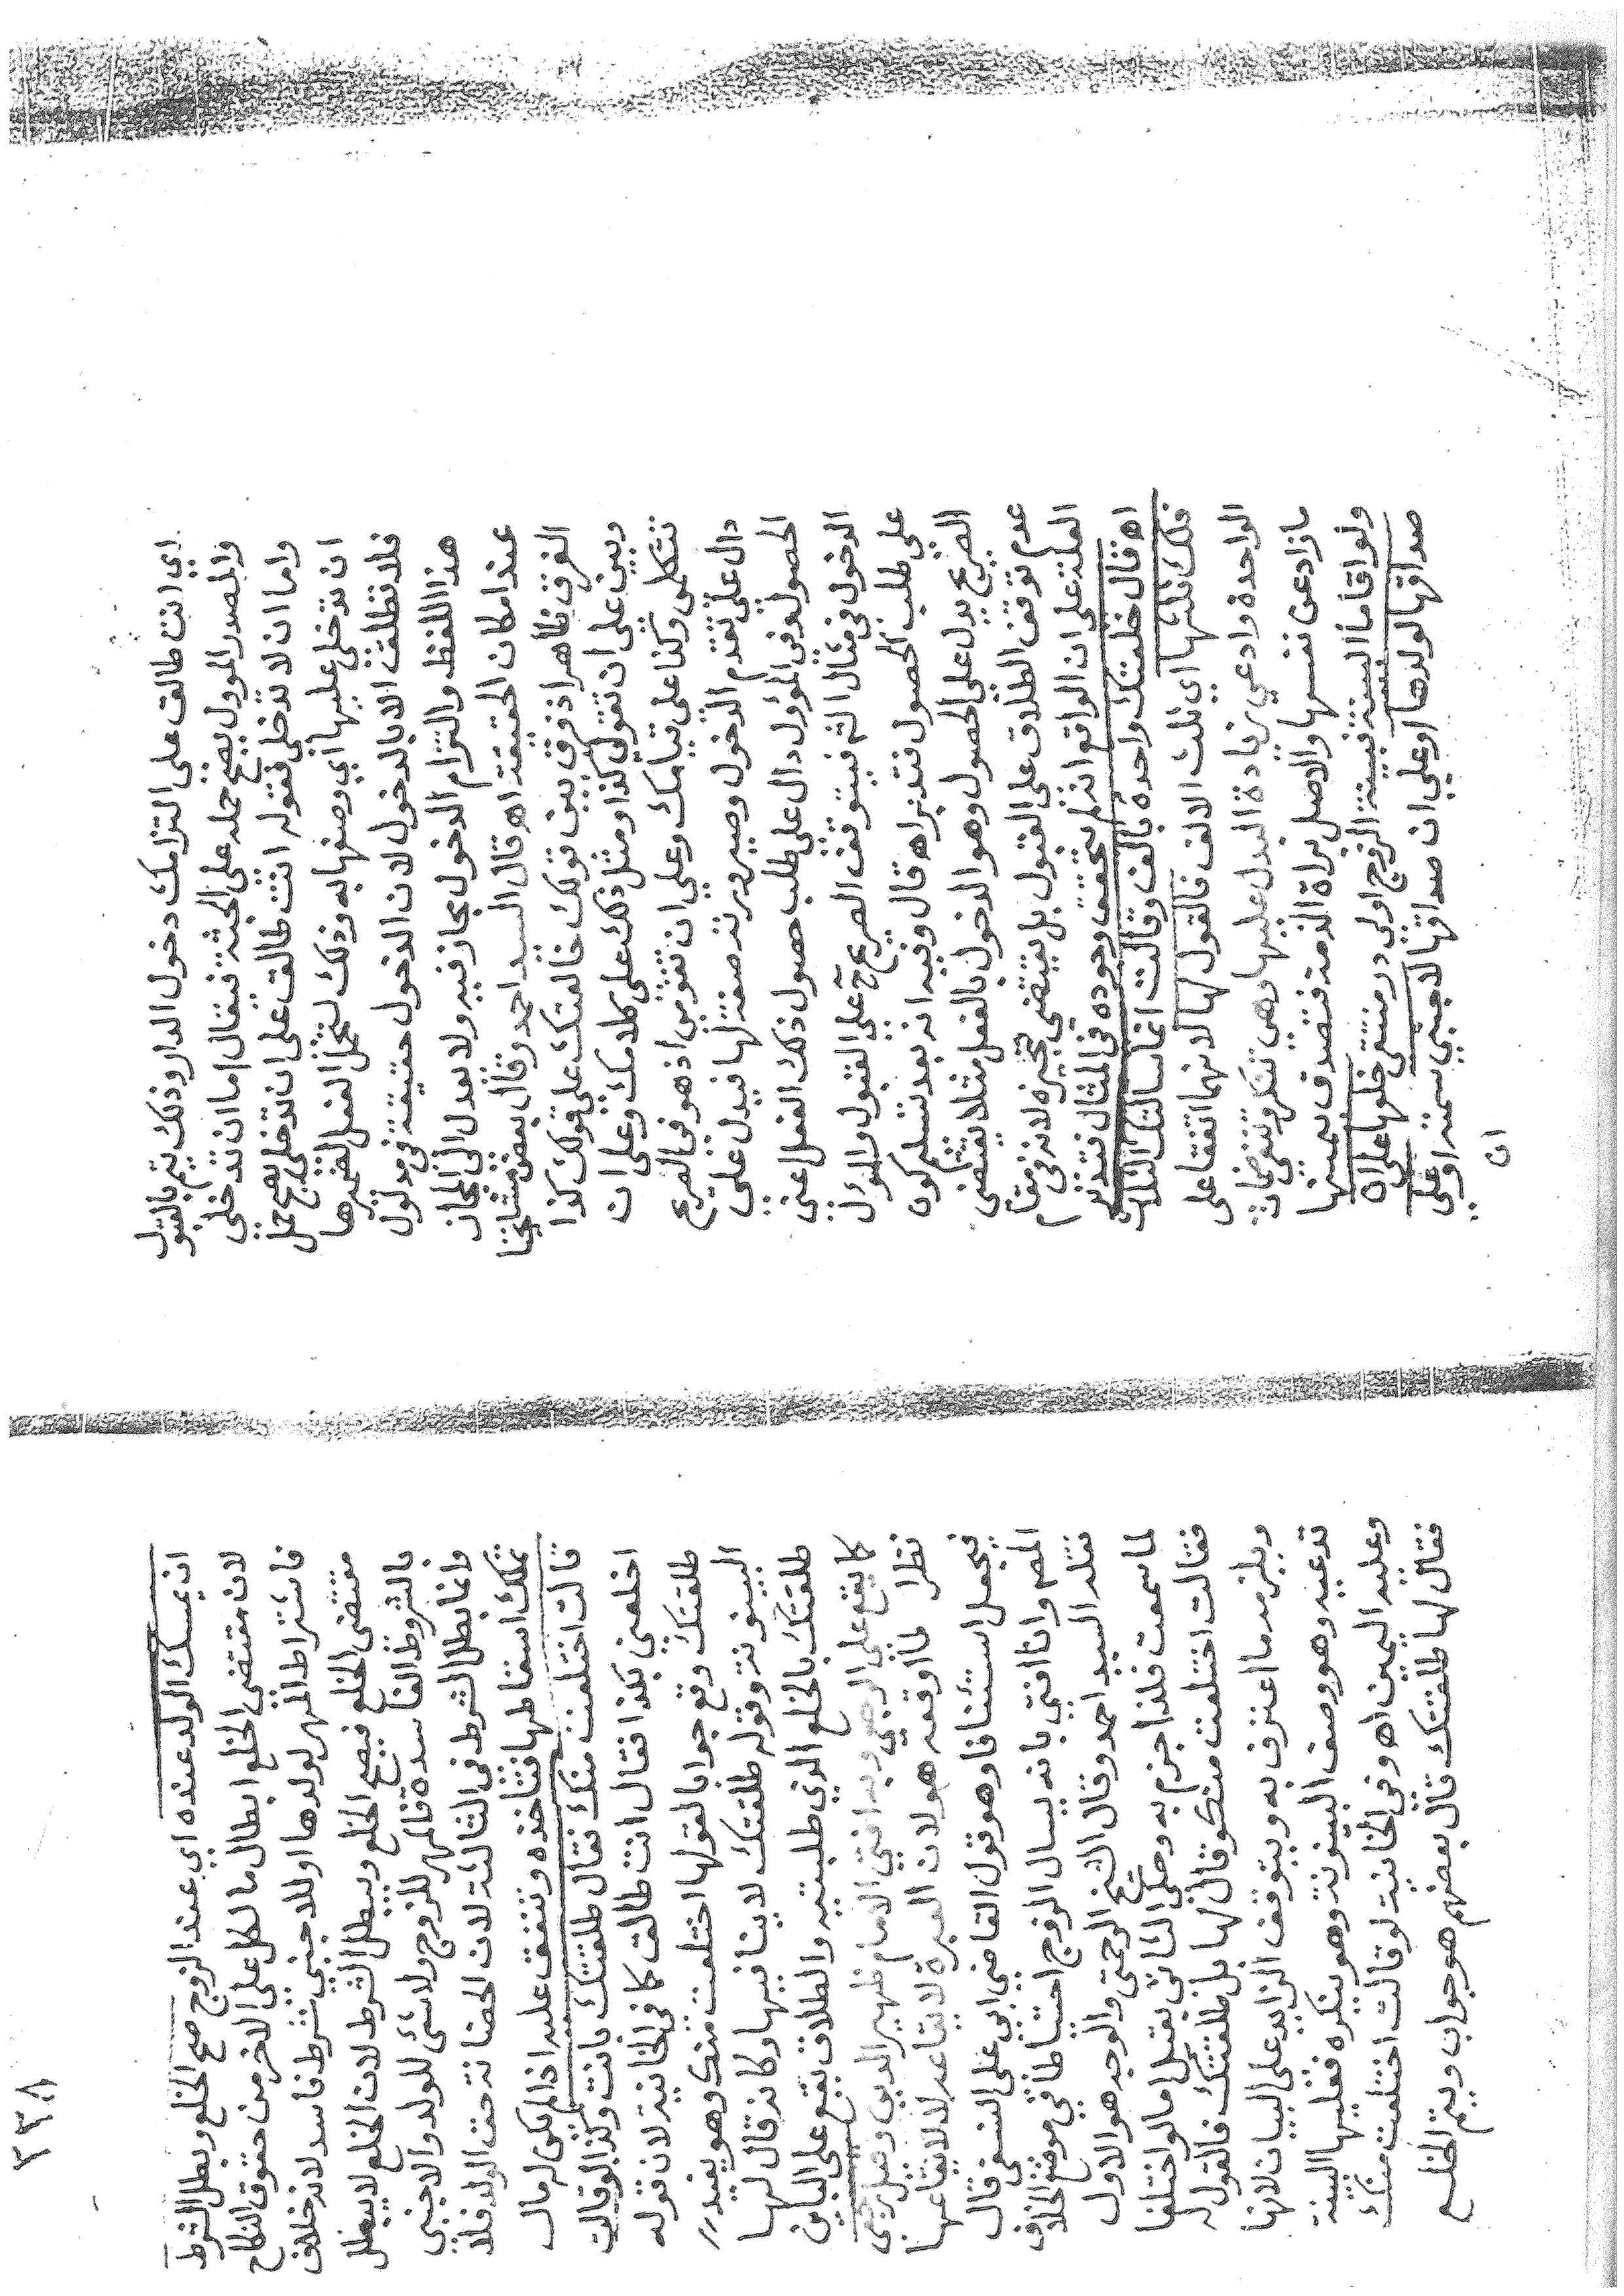 اي انت طالق على التزامك دخول الدار وذلك يتم بالقبول
والمصدر الموول يصح حمله على الجثة فيقال اما ان تدخلي
واما ان لا تدخلي فقوله انت طالق على ان تدخلي يصح حمل
ان تدخلي عليها اي وصفها به وذلك لتحمل الفعل لضميرها
فلا تطلق الا بالدخول لان الدخول حقيقة في مدلول
هذا اللفظ والتزام الدخول مجاز فيه ولا يعدل الى المجاز
عند امكان الحقيقة اه قال السيد احمد وقال بعض مشايخنا
الفرق ظاهر اذ فرق بين قولك خالفتك على قولك كذا
وبين على ان تقولي كذا ومثل ذلك على كلامك وعلى ان
تتكلمي وكذا على قيامك وعلى ان تقومي اذ هو في الصريح
دال على تقدم الدخول وصيرورته صفة لها فيدل على
الحصول وفي المؤول دال على طلب حصول ذلك الفعل اعني
الدخول في مثال الثم فيتوقف الصريح ح على القبول والمؤل
على طلب الحصول فتدبر اه قال وفيه انه بعد تسليم كون
الصريح يدل على الحصول وهو الدخول بالفعل مثلا يقتضى
عدم توقف الطلاق على القبول بل يقتضي تنجيزه لانه في مقام
العلة على ان الواقع انه لم يتحقق وجوده في المثال فتدبر
اه قال خلعتك واحدة بالف وقالت انما سالتك الثلاث
فلك ثلثها اي ثلث الالف فالقول لها لانهما اتفقا على
الواحدة وادعي زيادة البدل عليها وهي تنكر وتنفي ضمان
ما زاد عن نفسها والاصل براة الذمة فتصدق بيمينها
ولو اقاما البينة فبينة الزوج اولى درمنتقى خلعها على ان
صداقها لولدها او على ان صداقها لاجنبي سمته او على
ان
٢٣٨
ان يمسك الولد عنده اي عند الزوج صح الخلع وبطل الشرط
لان مقتضى الخلع ابطال ما لكل على الاخر من حقوق النكاح
فاشتراط المهر لولدها او للاجنبي شرط فاسد لانه خلاف
مقتضى الخلع فيصح الخلع ويبطل الشرط لان الخلع لا يبطل
بالشروط الفاسدة فالمهر للزوج ولا شئ للولد والاجنبي
وانما بطل الشرط في الثالثة لان الحضانة حق الولد فلا
تملك اسقاطها فتاخذه وتنفق عليه اذا لم يكن له مال
قالت اختلعت منك فقال طلقتك بانت وكذا لو قالت
اخلعني بكذا فقال انت طالق كما في الخانية لان قوله
طلقتك وقع جوابا لقولها اختلعت منك وهو يفيد
البينونة وقوله طلقتك لا ينافيها وكانه قال لها
طلقتك بالخلع الذي طلبتيه والطلاق يقع على البائن
كما يقع على الرجعي وبه افتى الامام ظهير الدين وقيل رجعي
نظرا لما اوقعه هو لان العبرة لايقاعه لا لايقاعها
فيجعل استئنافا وهو قول القاضي ابي على النسفي قال
المص وانا افتي بانه يسال الزوج احتياطا في موضع الخلاف
نقله السيد احمد وقال الشيخ الرحمتي والوجه هو الاول
لما سمعت فلذا جزم به وحكى الثاني بقيل اما لو اختلفا
فقالت اختلعت منك وقال لها بل طلقتك فالقول له
ويلزمه ما اعترف به ويتوقف الزايد على البيان لانها
تدعيه وهو وصف البينونة وهو ينكره فعليها البينة
وعليه اليمين اه وفي الخانية لو قالت اختلعت منك
فقال لها طلقتك قال بعضهم هو جواب ويتم الخلع